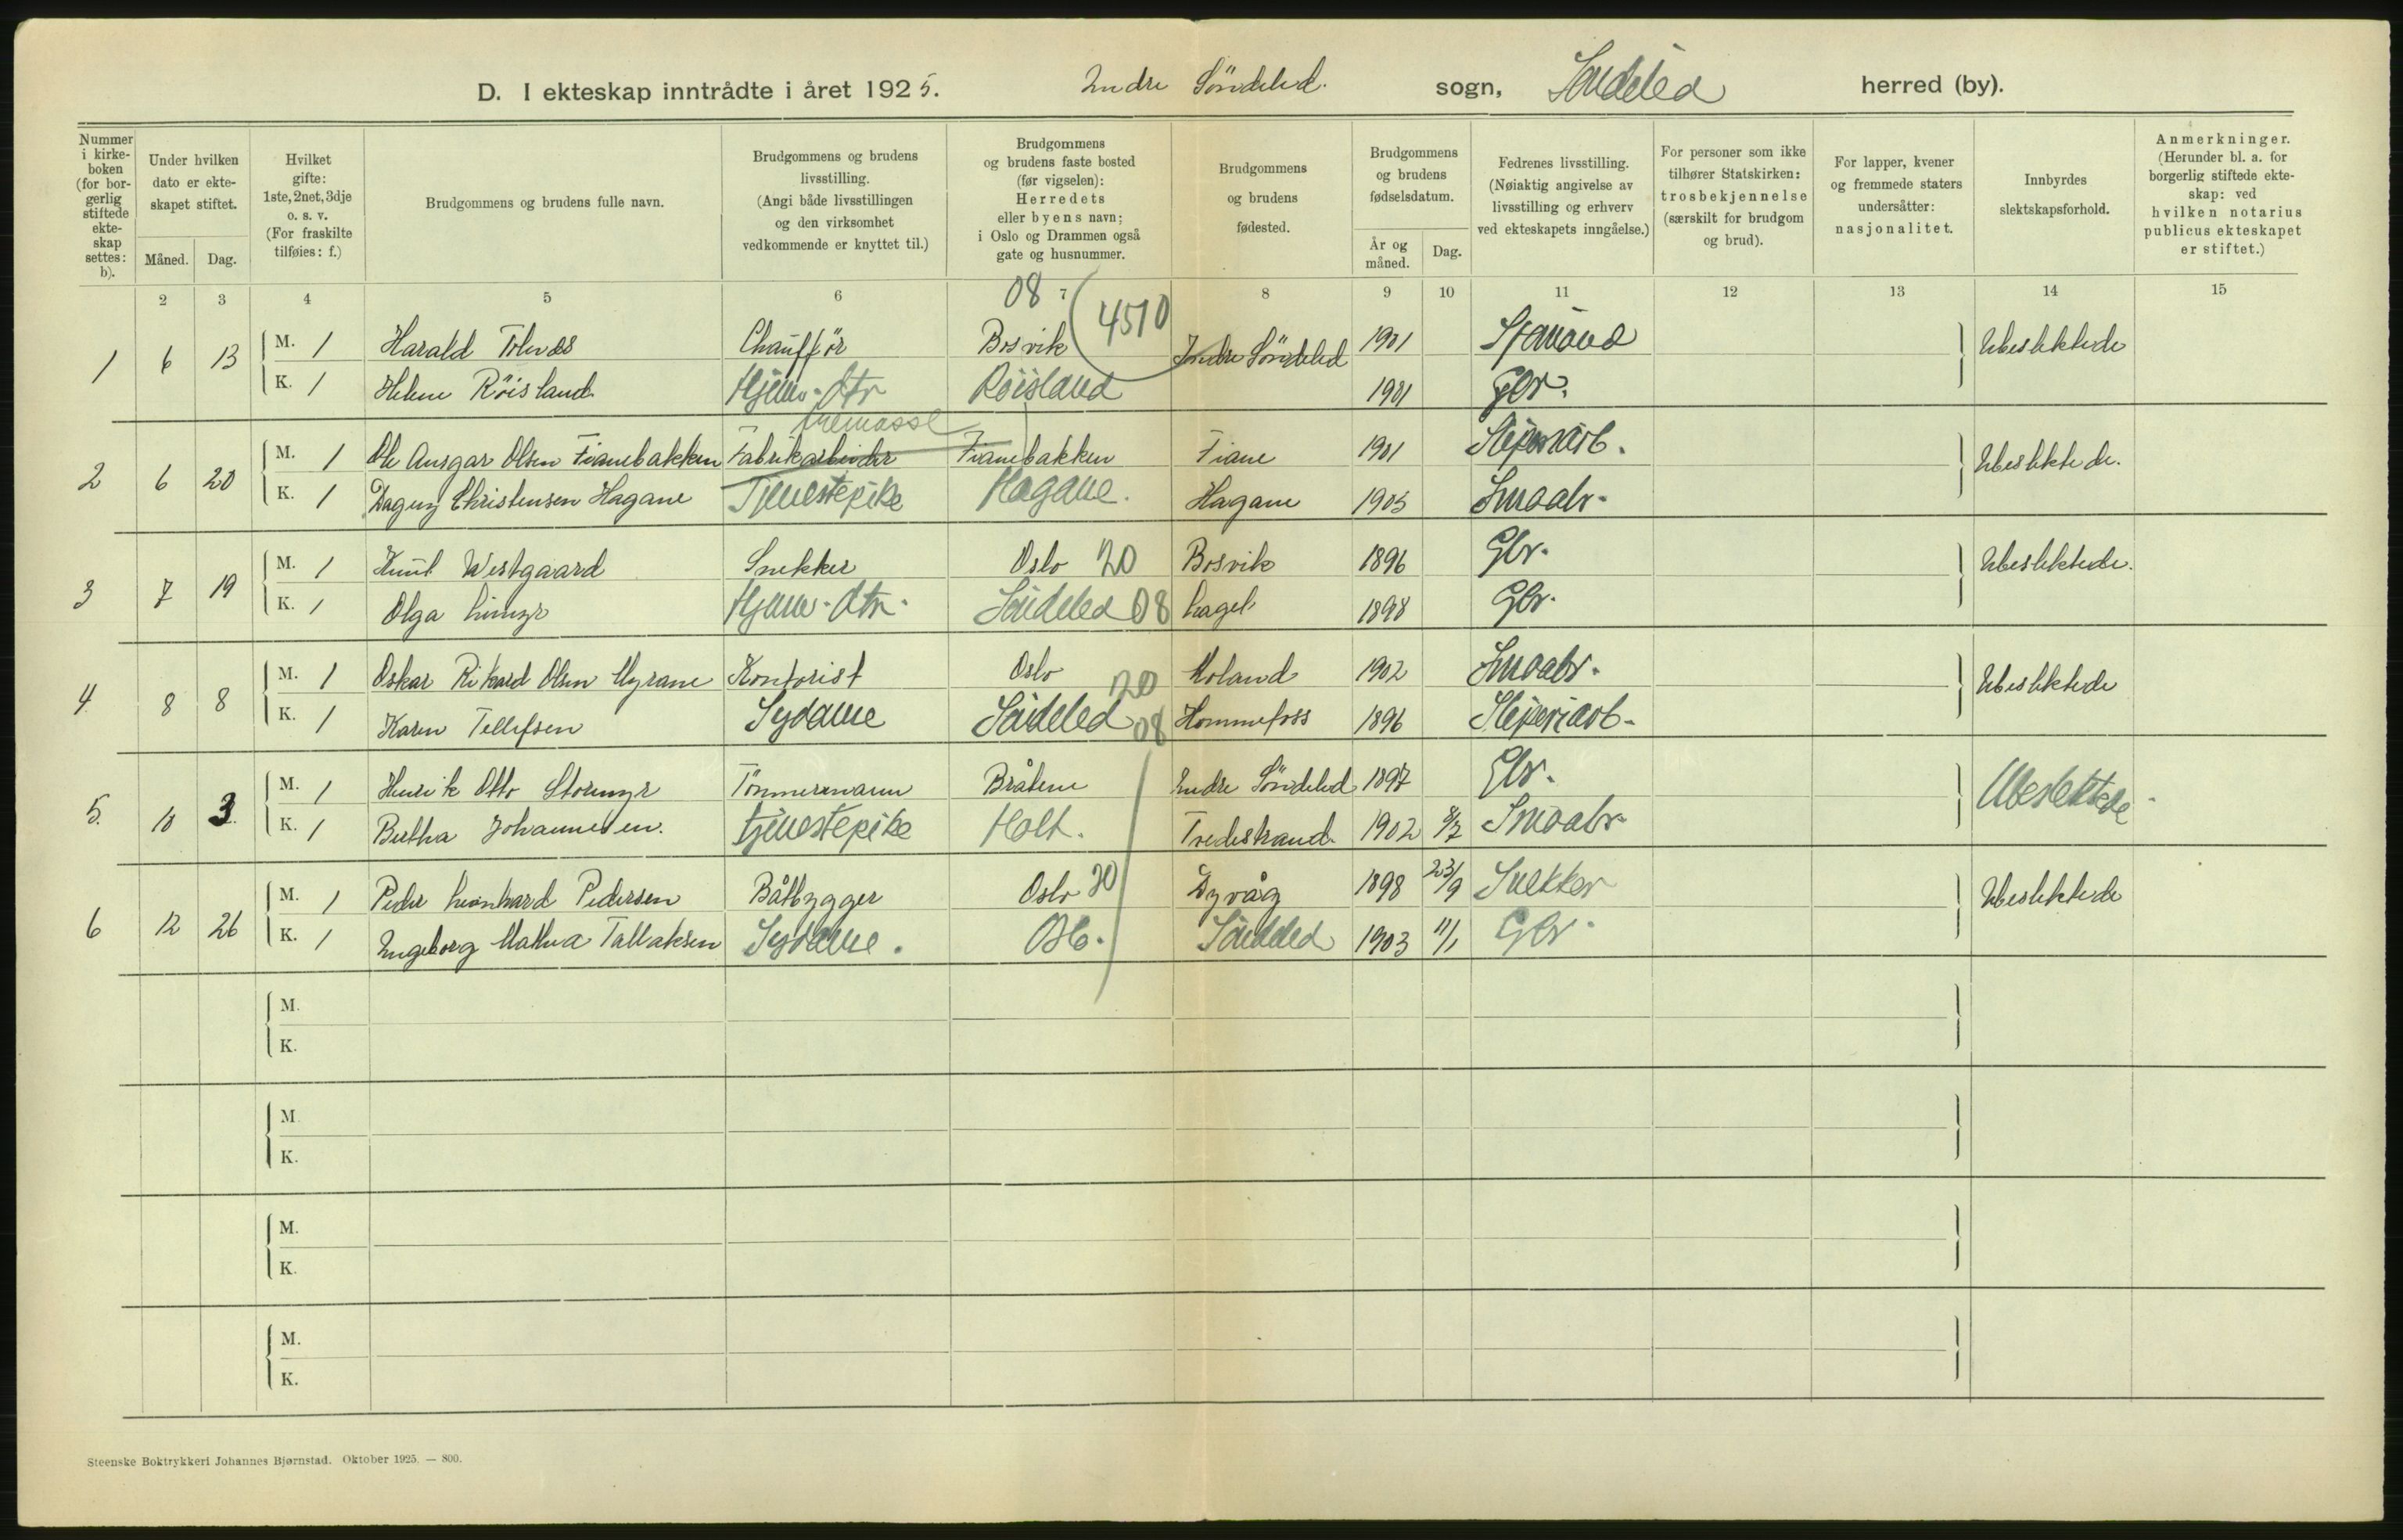 D. I ekteskap inntrådte i året 1925. Indre Söndeled. sogn, Söndeled herred (by).
Nummer i kirkeboken (for borgerlig stiftede ekteskap settes: b).
Under hvilken dato er ekteskapet stiftet.
Måned. Dag.
Hvilket gifte: 1ste, 2net, 3dje o. s. v. (For fraskilte tilføies: f.)
Brudgommens og brudens fulle navn.
Brudgommens og brudens livsstilling. (Angi både livsstillingen og den virksomhet vedkommende er knyttet til.)
Brudgommens og brudens faste bosted (før vigselen): Herredets eller byens navn; i Oslo og Drammen også gate og husnummer.
Brudgommens og brudens fødested.
Brudgommens og brudens fødselsdatum.
År og måned. Dag.
Fedrenes livsstilling. (Nøiaktig angivelse av livsstilling og erhverv ved ekteskapets inngåelse.)
For personer som ikke tilhører Statskirken: trosbekjennelse (særskilt for brudgom og brud).
For lapper, kvener og fremmede staters undersåtter: nasjonalitet.
Innbyrdes slektskapsforhold.
Anmerkninger. (Herunder bl. a. for borgerlig stiftede ekteskap: ved hvilken notarius publicus ekteskapet er stiftet.)
2 3 4 5 6 7 8 9 10 11 12 13 14 15
08 4510
1 6 13 M. 1 Harald Bosvik Chauffør Indre Söndeled 1901 Ubeslektede
K. 1 Helene Röisland Hjem. dtr Röisland 1901 Gbr.
2 6 20 M. 1 Ole Ansgar Olsen Fianebakken Fabrikarbeider Fianebakken Fiane 1901 Ubeslektede.
K. 1 Dagny Christensen Hagane Tjenestepike Hagane. Hagane 1905 Smaabr.
3 7 19 M. 1 Knut Westgaard Snekker Oslo 20 Bosvik 1896 Gbr. Ubeslektede.
K. 1 Olga Hjem. dtr. Söndeled 08 1898 Gbr.
4 8 8 M. 1 Oskar Rikard Olsen Myrane Kontorist Oslo 20 Holand 1902 Smaabr. Ubeslektede
K. 1 Karen Tellefsen Sydame Söndeled 08 Hommefoss 1896
5. 10 3. M. 1 Henrik Otto Stormyr Tömmermann Bråtene Indre Söndeled 1897 Gbr. Ubeslektede
K. 1 Bertha Johannesen. tjenestepike Holt. Tvedestrand 1902 8/7 Smaabr.
6 12 26 M. 1 Peder Leonhard Pedersen Båtbygger Oslo 20 Dyvåg 1898 23/9 Snekker Ubeslektede
K. 1 Ingeborg Mathea Tallaksen Sydame. Do. Söndeled 1903 11/1 Gbr.
M.
K.
M.
K.
M.
K.
M.
K.
Steenske Boktrykkeri Johannes Bjørnstad. Oktober 1925. — 800.